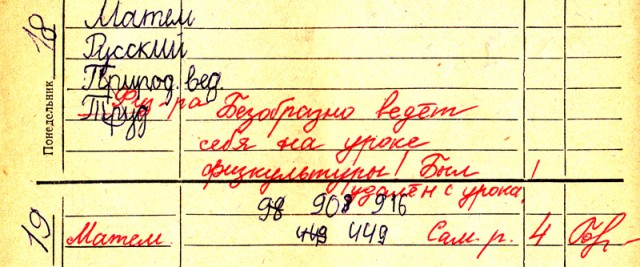 18
Понедельник
Матем
Русский
Природ. вед.
Труд
Физ-ра Безобразно ведёт
себя на уроке
физкультуры! Был !
удалён с урока.
19
98 908 916
449 449
Матем. Сам. р. 4